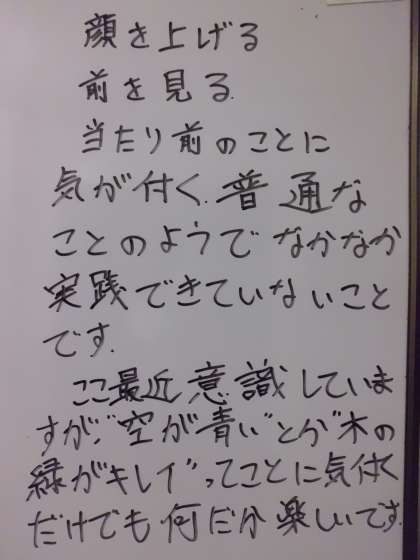 顔を上げる
前を見る.
当たり前のことに
気が付く.普通な
ことのようでなかなか
実践できていないこと
です.
ここ最近意識していま
すが、"空が青い"とか"木の
緑がキレイ"ってことに気付く
だけでも何だか楽しいです.